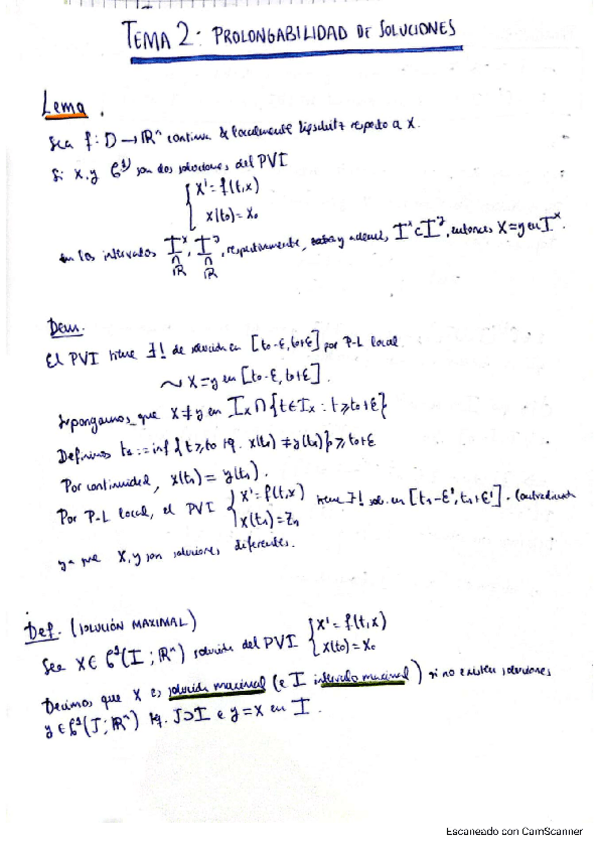 TEMA 2: PROLONGABILIDAD DE SOLUCIONES
Lema.
Sea f: D → ℝⁿ continua & localmente lipschitz respecto a x.
Si x, y ∈ C¹ son dos soluciones del PVI
{ x' = f(t,x)
x(t₀) = x₀
en los intervalos Iˣ, Iʸ, respectivamente, y además, Iˣ ⊂ Iʸ, entonces x = y en Iˣ.
∩ ∩
ℝ ℝ
Dem.
El PVI tiene ∃! de solución en [t₀-ε, t₀+ε] por P-L local.
~ x = y en [t₀-ε, t₀+ε].
Supongamos que x ≠ y en Iₓ ∩ {t ∈ Iₓ : t ≥ t₀+ε}
Definimos t₁ := inf {t ≥ t₀ tq. x(t) ≠ y(t)} ≥ t₀+ε
Por continuidad, x(t₁) = y(t₁).
Por P-L local, el PVI { x' = f(t,x) tiene ∃! sol. en [t₁-ε', t₁+ε']. Contradicción
x(t₁) = z₁
ya que x, y son soluciones diferentes.
Def. (SOLUCIÓN MAXIMAL)
Sea x ∈ C¹(I; ℝⁿ) solución del PVI { x' = f(t,x)
x(t₀) = x₀
Decimos que x es solución maximal (e I intervalo maximal) si no existen soluciones
y ∈ C¹(J; ℝⁿ) tq. J ⊃ I e y = x en I.
Escaneado con CamScanner